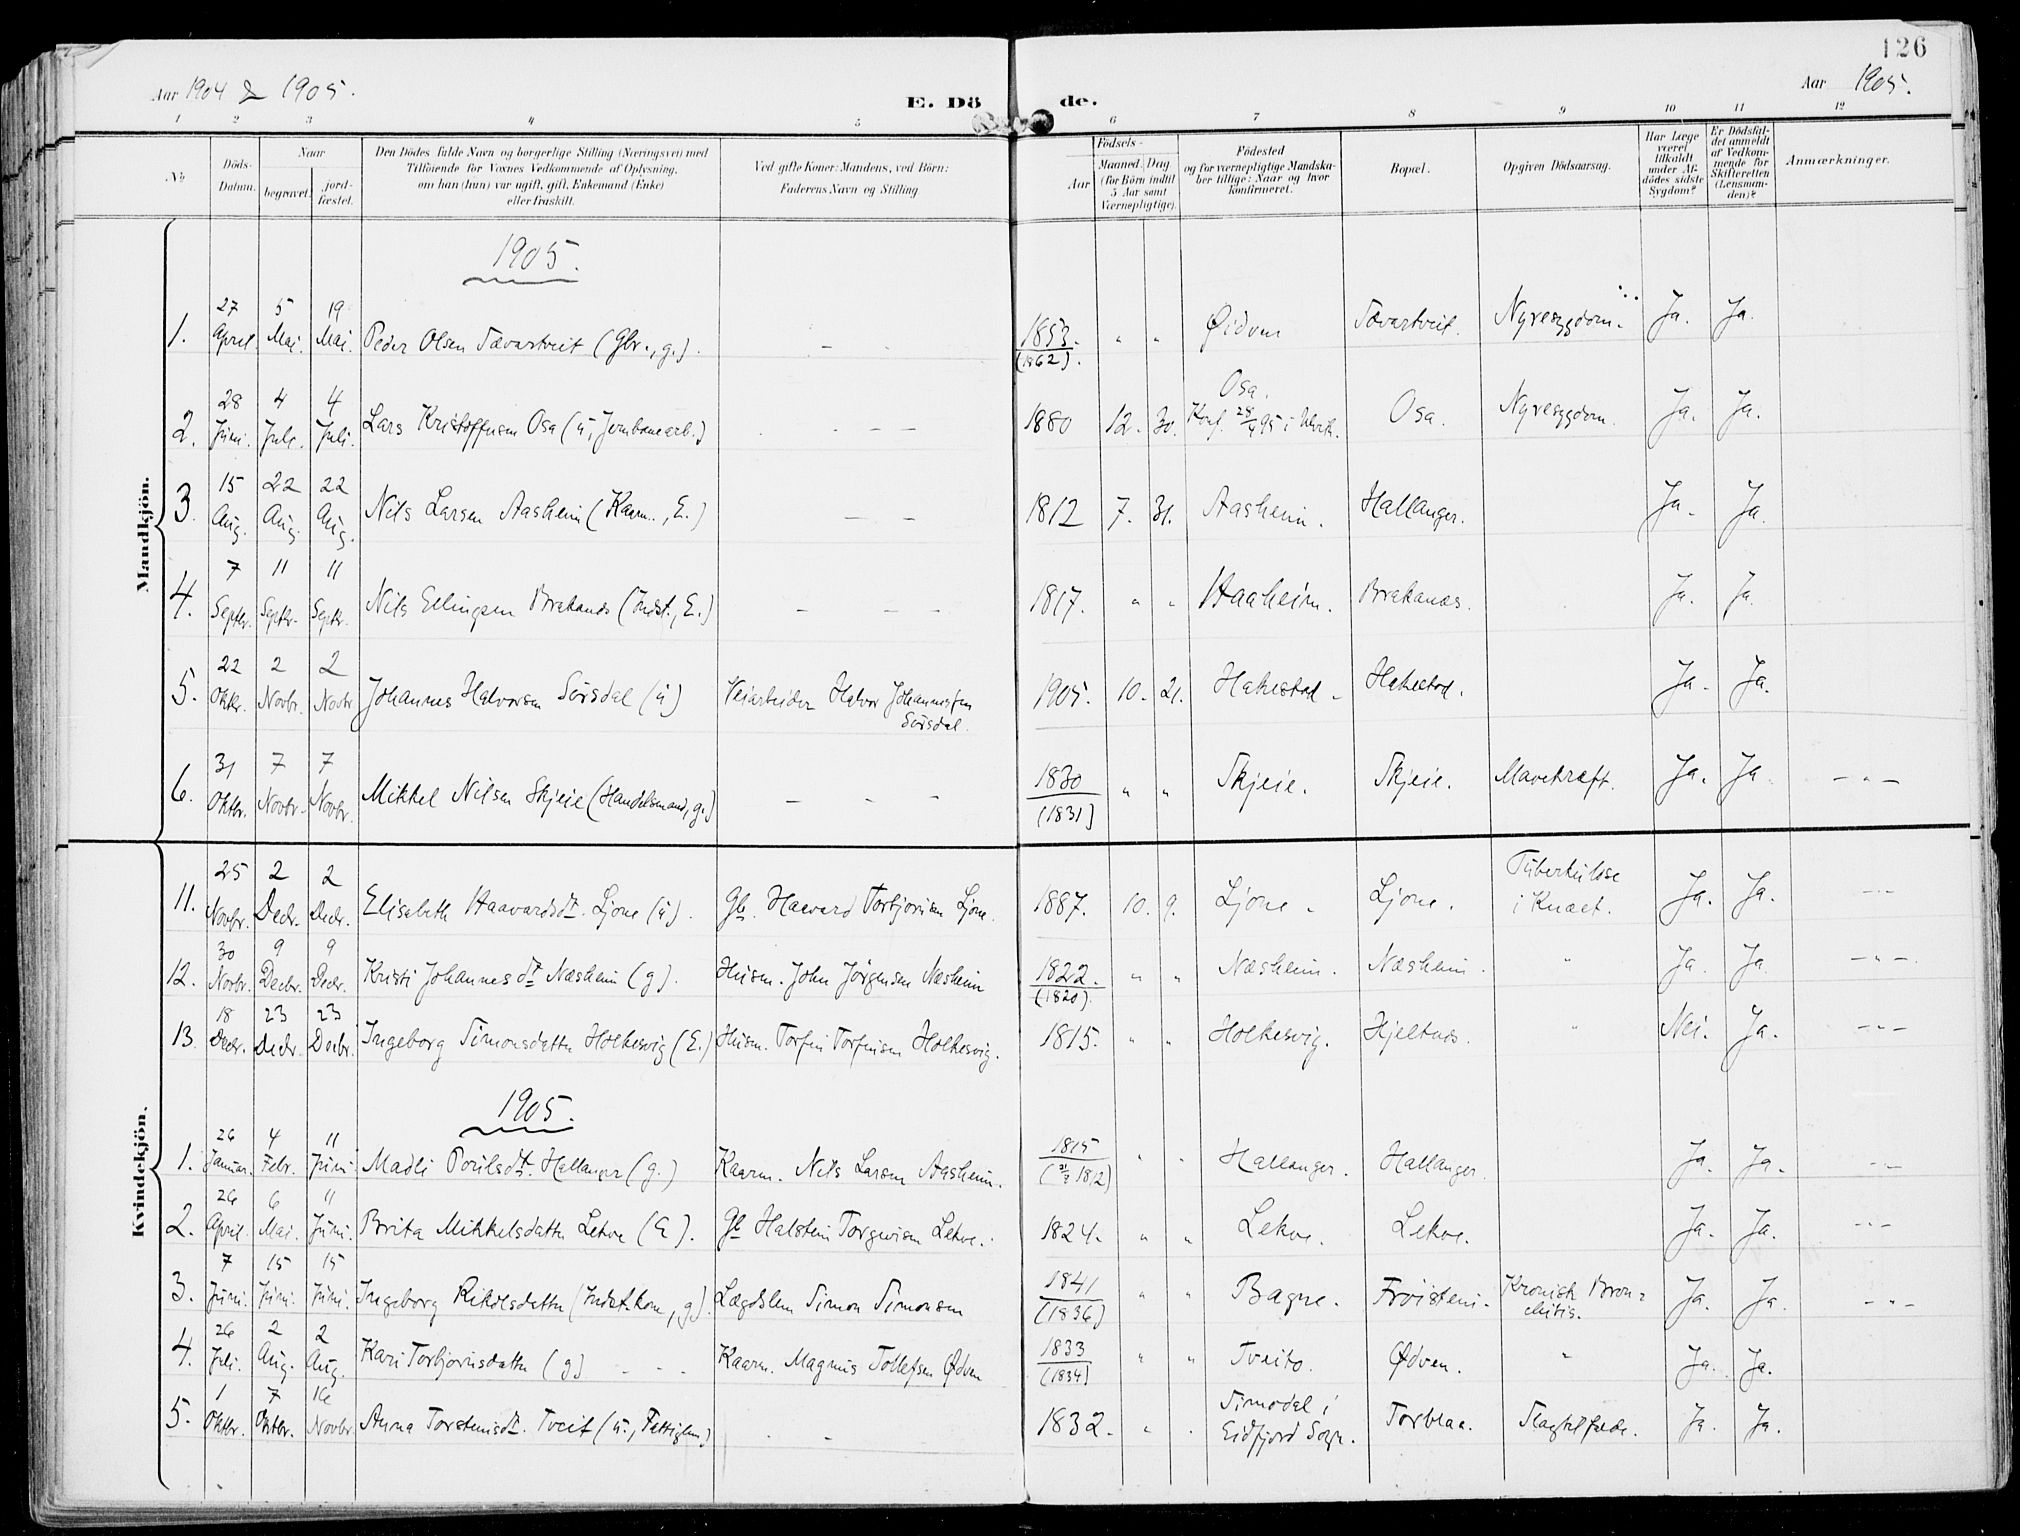 126
Aar 1904 & 1905.
E. Dö de.
Aar 1905.
1 2 3 4 5 6 7 8 9 10 11 12
No
Döds-
Datum.
Naar
begravet.
jord-
fæstet.
Den Dödes fulde Navn og borgerlige Stilling (Næringsvei) med
Tilföiende for Voxnes Vedkommende af Oplysning,
om han (hun) var ugift, gift, Enkemand (Enke)
eller fraskilt.
Ved gifte Koner: Mandens, ved Börn:
Faderens Navn og Stilling
Födsels-
Aar
Maaned Dag
(for Börn indtil
5 Aar samt
Værnepligtige).
Födested
og for værnepligtige Mandska-
ber tillige: Naar og hvor
konfirmeret.
Bopæl.
Opgiven Dödsaarsag.
Har Læge
været
tilkaldt
under Af-
dödes sidste
Sygdom?
Er Dödsfal-
det anmeldt
af Vedkom-
mende for
Skifteretten
(Lensman-
den)?
Anmærkninger.
Mandkjön.
1905.
1. 27 April. 5 Mai. 19 Mai. Peder Olsen Tævartveit (Gbr., g.). – – – 1853. (1862). " " Øidven Tævartveit. Nyresygdom. Ja. Ja.
2. 28 Juni. 4 Juli. 4 Juli. Lars Kristoffersen Osa (ú, Jernbanearb.) – – – 1880 12. 30. Osa. Konf. 28/4 95 i Ulvik. Osa. Nyresygdom. Ja. Ja.
3. 15 Aug. 22 Aug. 22 Aug. Nils Larsen Aasheim (Kaarm., E.) – – 1812 7. 31. Aasheim. Hallanger. Ja. Ja.
4. 7 Septbr. 11 Septbr. 11 Septbr. Nils Ellingsen Brakanæs (Indst., E.) – – – 1817. " " Haaheim. Brakanæs. Ja. Ja.
5. 22 Oktbr. 2 Novbr. 2 Novbr Johannes Halvorsen Sörsdal (ú) Veiarbeider Halvor Johannessen Sörsdal. 1905. 10. 21. Hakestad. Hakestad. Ja. Ja.
6. 31 Oktbr. 7 Novbr. 7 Novbr. Mikkel Nilsen Skjeie (Handelsmand, g.) – – – 1830 (1831) " " Skjeie. Skjeie. Mavekræft. Ja. Ja – " –
Kvindekjön.
11. 25 Novbr. 2 Decbr. 2 Decbr. Elisabeth Haavardsdt. Ljone (ú). Gb. Haavard Torbjörnsen Ljone. 1887. 10. 9. Ljone. Ljone. Tuberkulose i Knæet. Ja. Ja. – " –
12. 30 Novbr. 9 Decbr. 9 Decbr. Kristi Johannesdt Næsheim (g). Husm. John Jørgensen Næsheim 1822. (1820). " " Næsheim. Næsheim. " Ja. Ja – " –
13. 18 Decbr. 23 Decbr. 23 Decbr. Ingeborg Simonsdatter Holkesvig (E.) Husm. Torfin Torfinsen Holkesvig. 1815. " " Holkesvig. Hjeltnæs. " Nei. Ja. – " –
1905.
1. 26 Januar. 4 Febr. 11 Juni Madli Poulsdt. Hallanger (g.) Kaarm. Nils Larsen Aasheim. 1815 " " Hallanger. Hallanger. Ja. Ja. – " –
2. 26 April. 6 Mai. 11 Juni. Brita Mikkelsdatter Lekve (E). Gb Halstein Torgeirsen Lekve. 1824. " " Lekve. Lekve. Ja. Ja. – " –
3. 7 Juni. 15 Juni. 15 Juni. Ingeborg Rikolsdatter (Indst. kone, g). Lægdslem Simon Simonsen 1841 (1836) " " Bagne. Fröistein. Kronisk Bron= chitis. Ja. Ja. – " –
4. 26 Juli. 2 Aug. 2 Aug. Kari Torbjørnsdatter (g) – – – Kaarm. Magnus Tollefsen Ødven 1833 (1834) " " Tveito. Ødven. " Ja. Ja.
5. 1 Oktbr. 7 Oktbr. 16 Novbr. Anna Torsteinsdt. Tveit (ú., Fattiglem) – – 1832. " " Simodal i Eidfjord Sogn. Torblaa. Slagtilfælde. Ja. Ja.